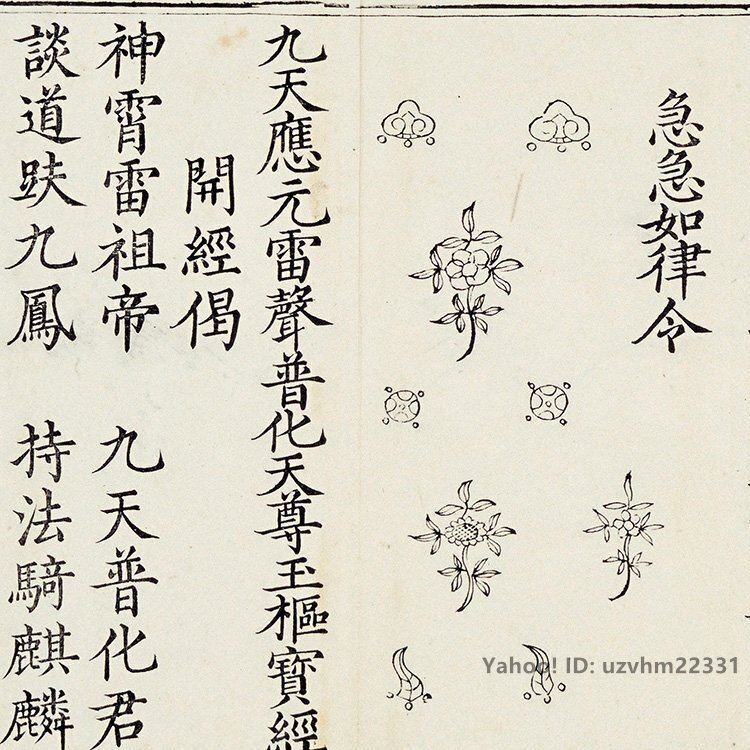 急急如律令
九天應元雷聲普化天尊玉樞寶經
開經偈
神霄雷祖帝 九天普化君
談道趺九鳳 持法騎麒麟
Yahoo! ID: uzvhm22331